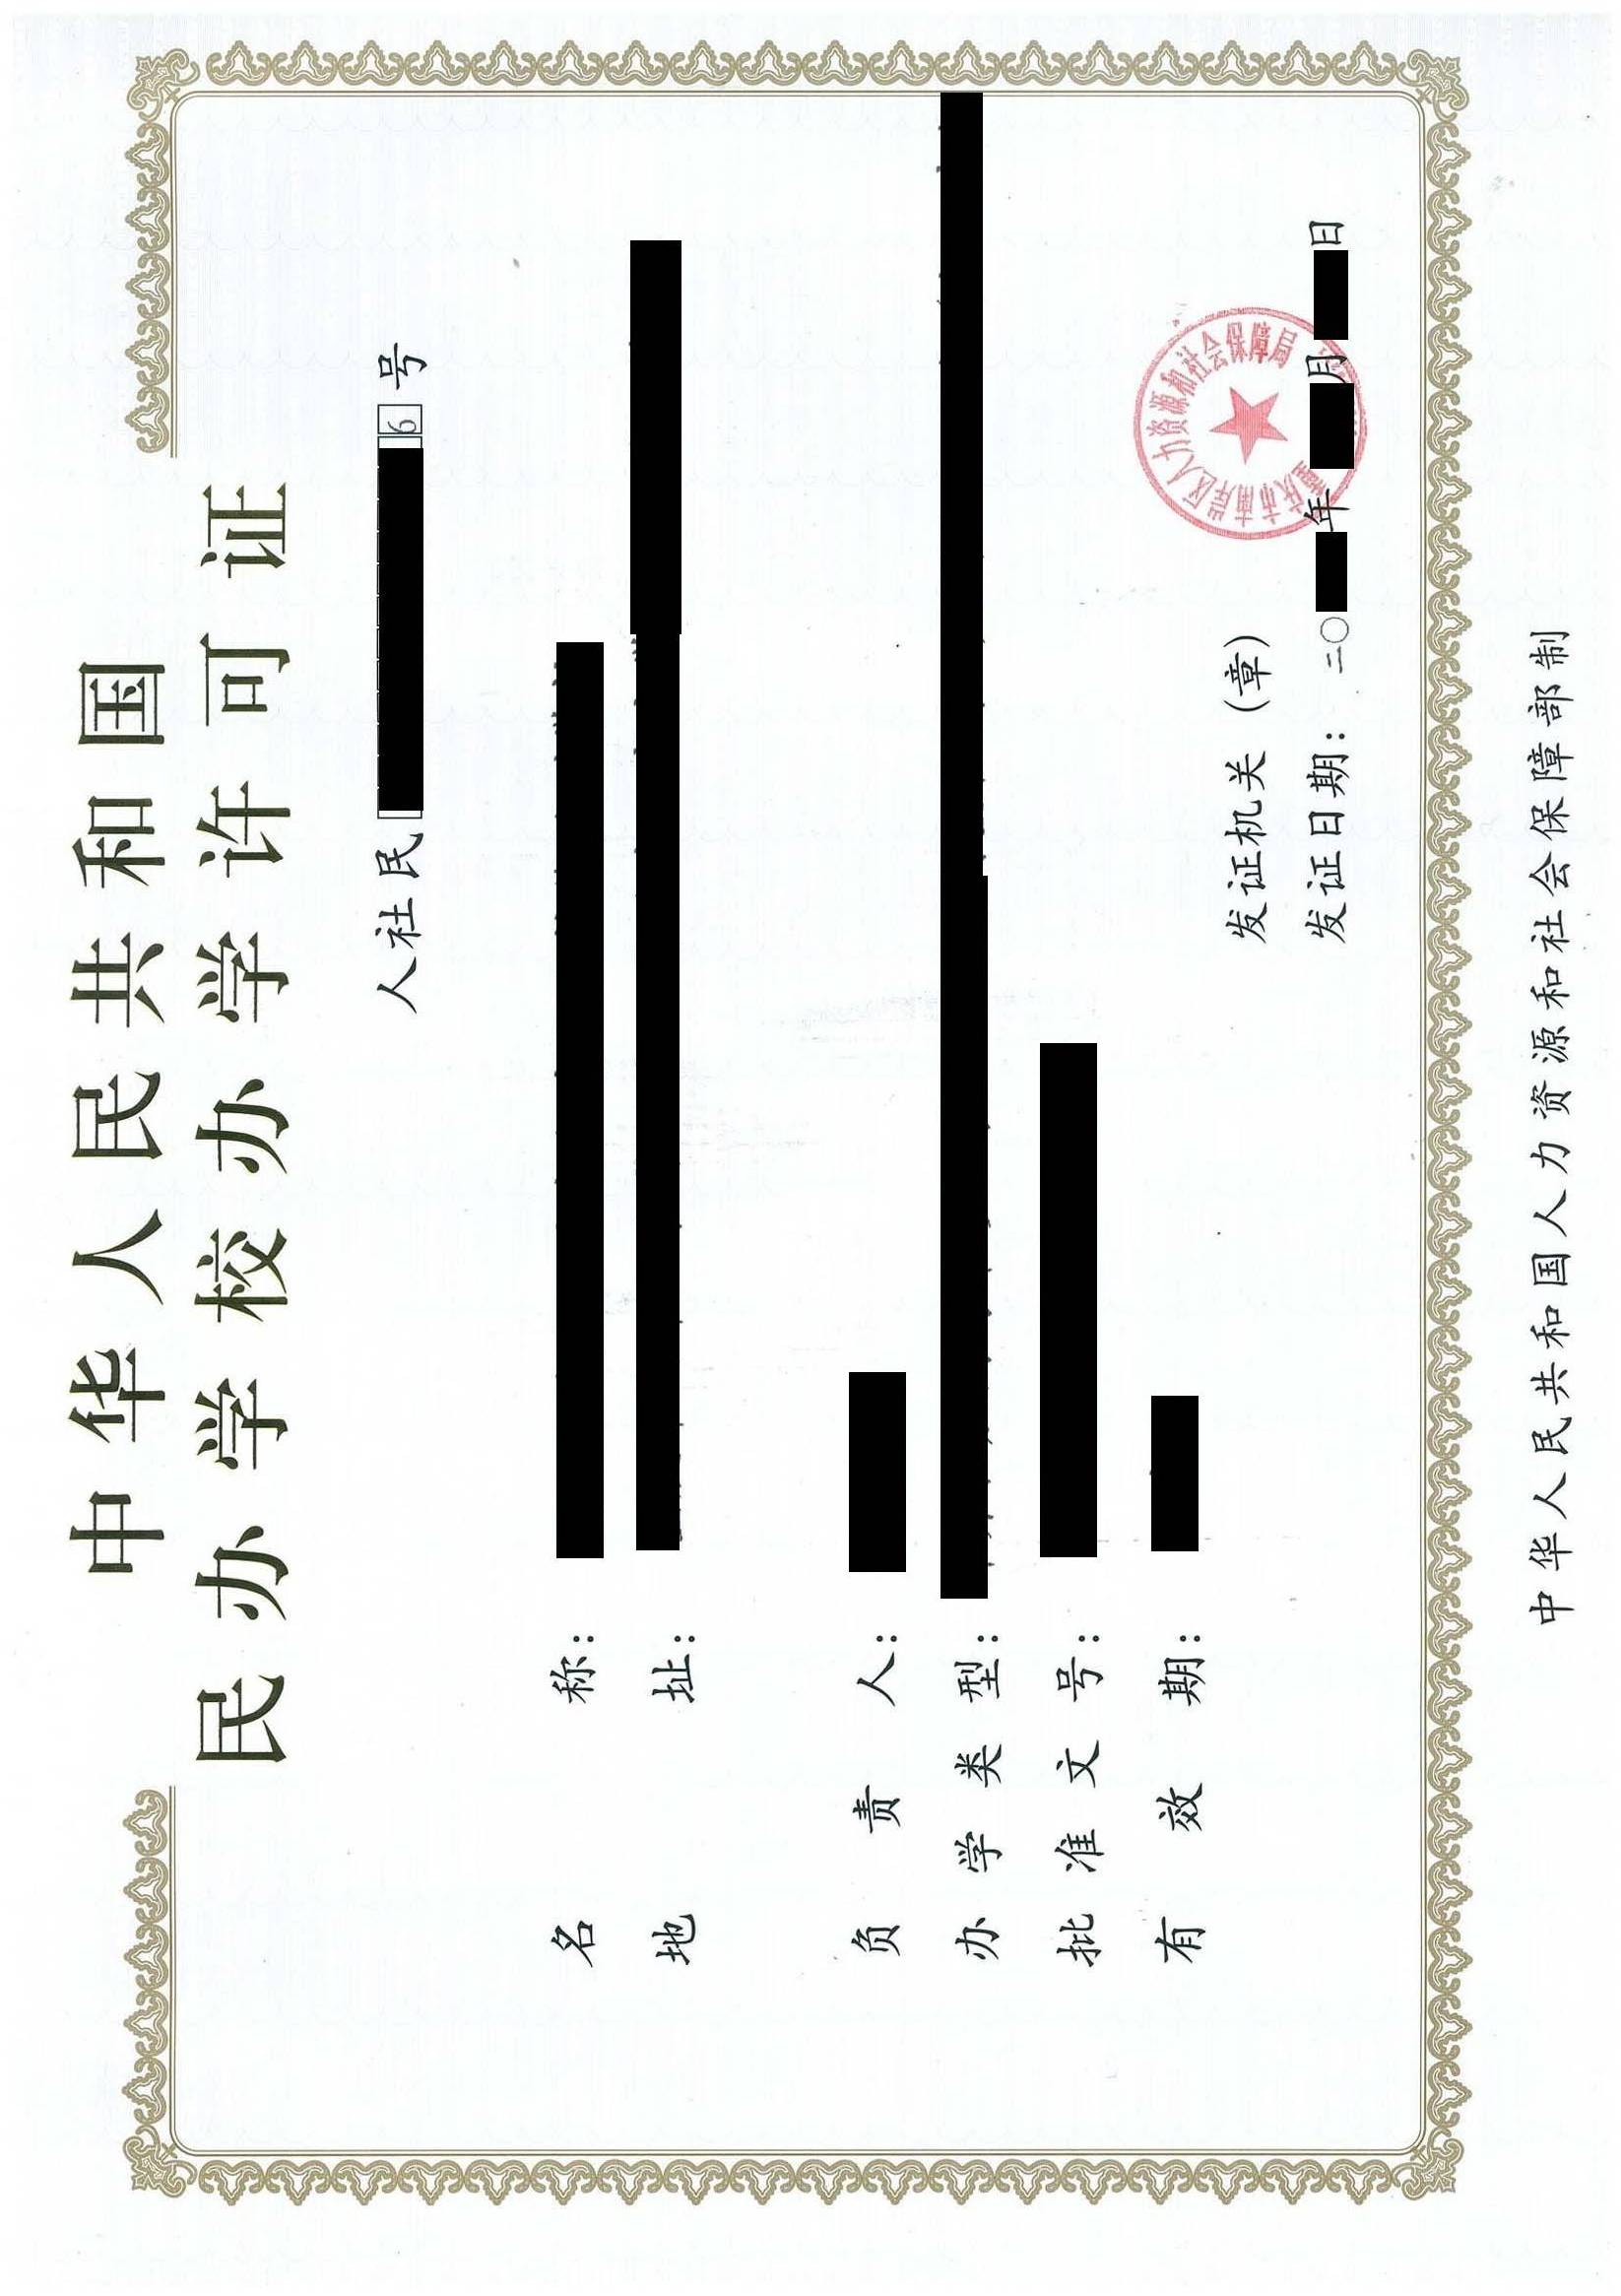 中华人民共和国
民办学校办学许可证
人社民 6 号
名称：
地址：
负责人：
办学类型：
批准文号：
有效期：
发证机关（章）
重庆市南岸区人力资源和社会保障局
发证日期：二〇 年 月 日
中华人民共和国人力资源和社会保障部制